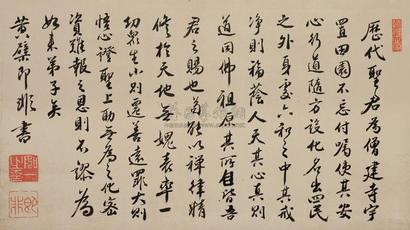 歷代聖君為僧建寺宇
置田園不忘付囑使其安
心行道隨方設化名出四民
之外身處六和之中其戒
淨則福蔭人天其心真則
道同佛祖原其所自皆吾
君之賜也苟能以禪律精
脩於天地無愧表率一
切眾生小則遷善遠罪大則
悟心證聖上助無為之化密
資難報之恩則不謬為
如來弟子矣
黃檗即非書